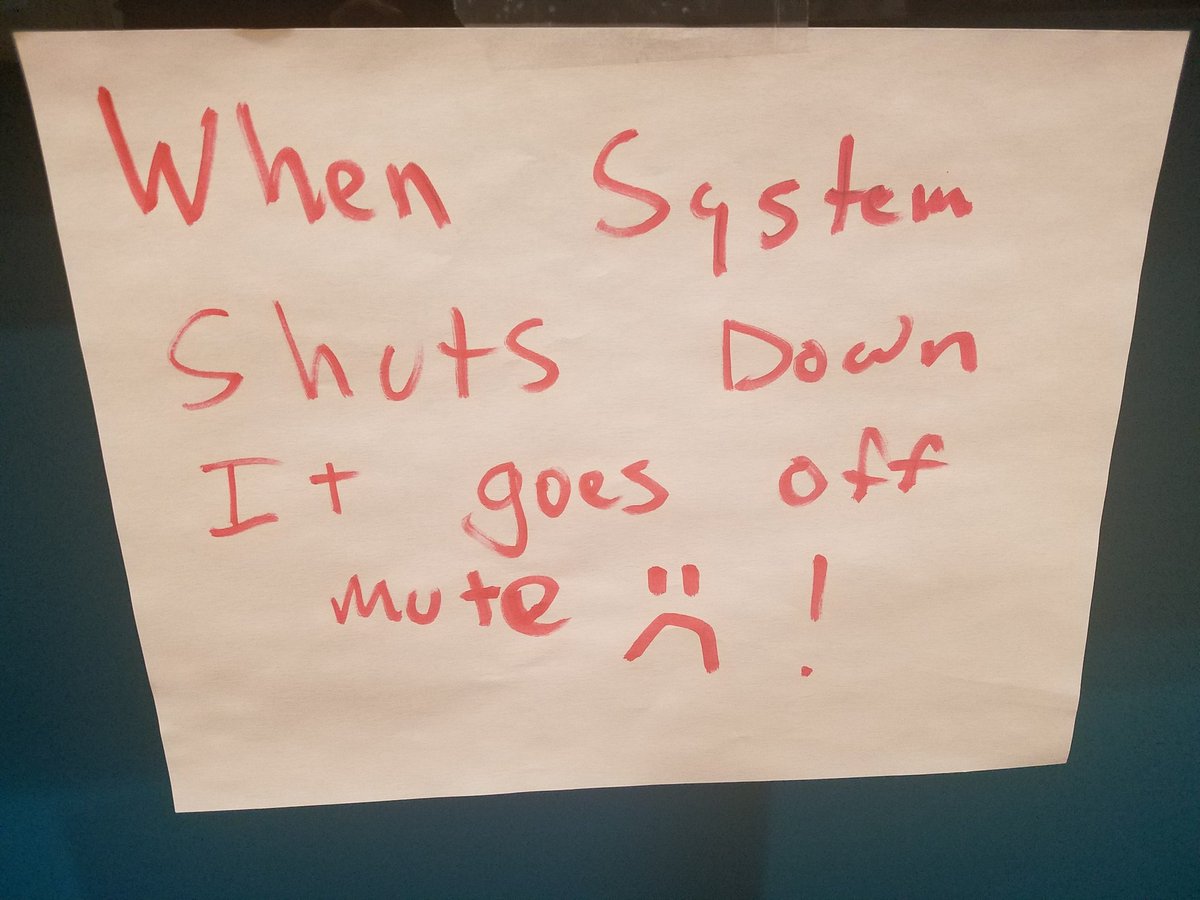 When System
Shuts Down
It goes off
mute !